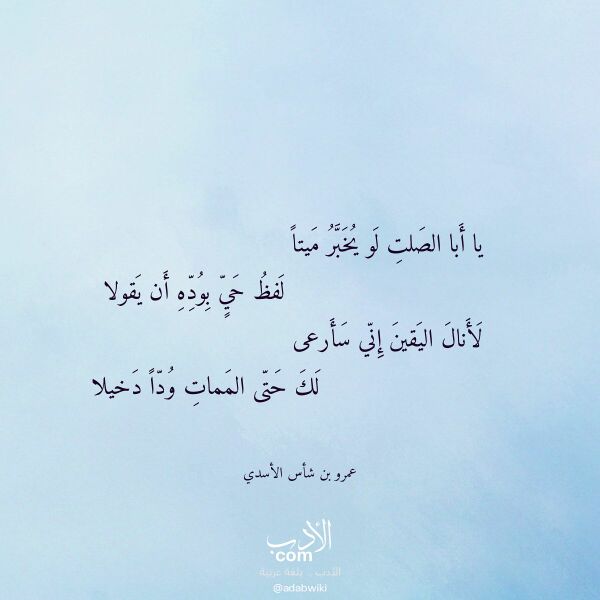 يا أَبا الصَلتِ لَو يُخَبَّرُ مَيتاً
لَفظُ حَيٍّ بِوُدِّهِ أَن يَقولا
لَأَنالَ اليَقينَ إِنّي سَأَرعى
لَكَ حَتّى المَماتِ وُدّاً دَخيلا
عمرو بن شأس الأسدي
الأدب
com
الأدب .. بلغة عربية
@adabwiki